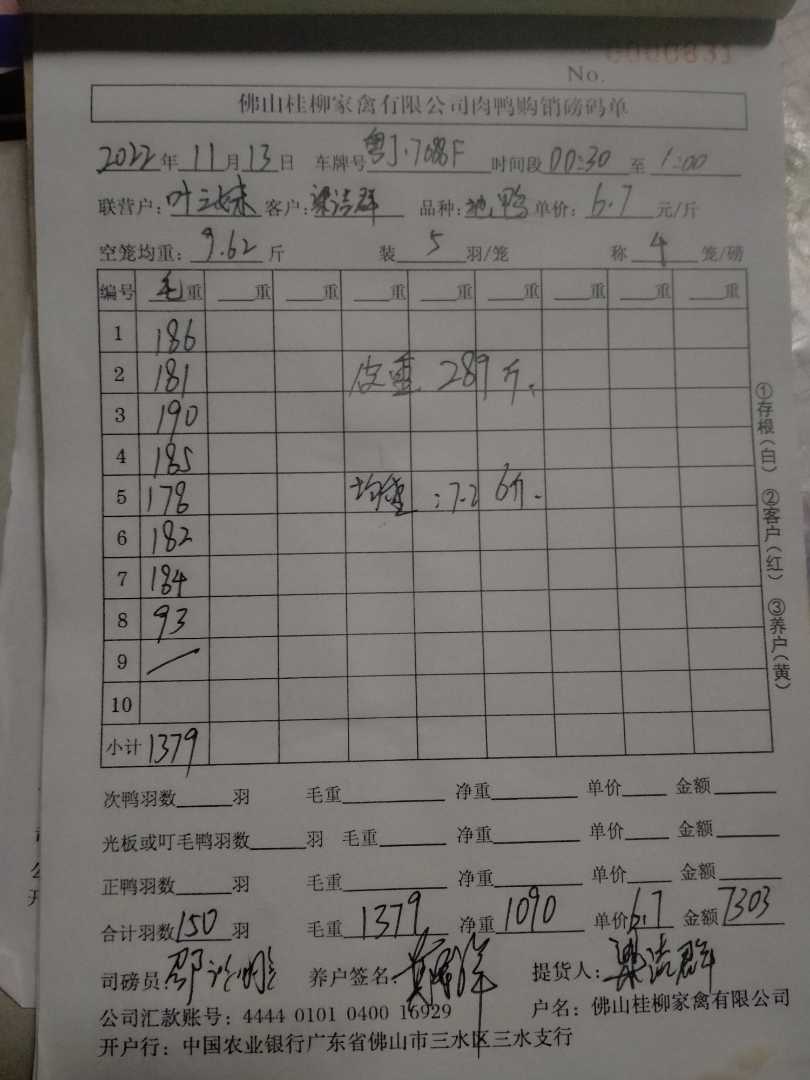 No. 0000831
佛山桂柳家禽有限公司肉鸭购销磅码单
2022年 11月13日 车牌号粤J·768F 时间段00:30至1:00
联营户:叶三妹 客户:梁洁群 品种:地鸭 单价:6.7元/斤
空笼均重:9.62斤 装5羽/笼 称4笼/磅
编号 毛重 重 重 重 重 重 重 重 重
1 186
2 181 皮重 289斤.
3 190
4 185
5 178 均重:7.26斤.
6 182
7 184
8 93
9 —
10
小计 1379
①存根(白) ②客户(红) ③养户(黄)
次鸭羽数 羽 毛重 净重 单价 金额
光板或叮毛鸭羽数 羽 毛重 净重 单价 金额
正鸭羽数 羽 毛重 净重 单价 金额
合计羽数150羽 毛重1379 净重1090 单价6.7 金额7303
司磅员 养户签名: 提货人:梁洁群
公司汇款账号:4444 0101 0400 16929 户名:佛山桂柳家禽有限公司
开户行:中国农业银行广东省佛山市三水区三水支行